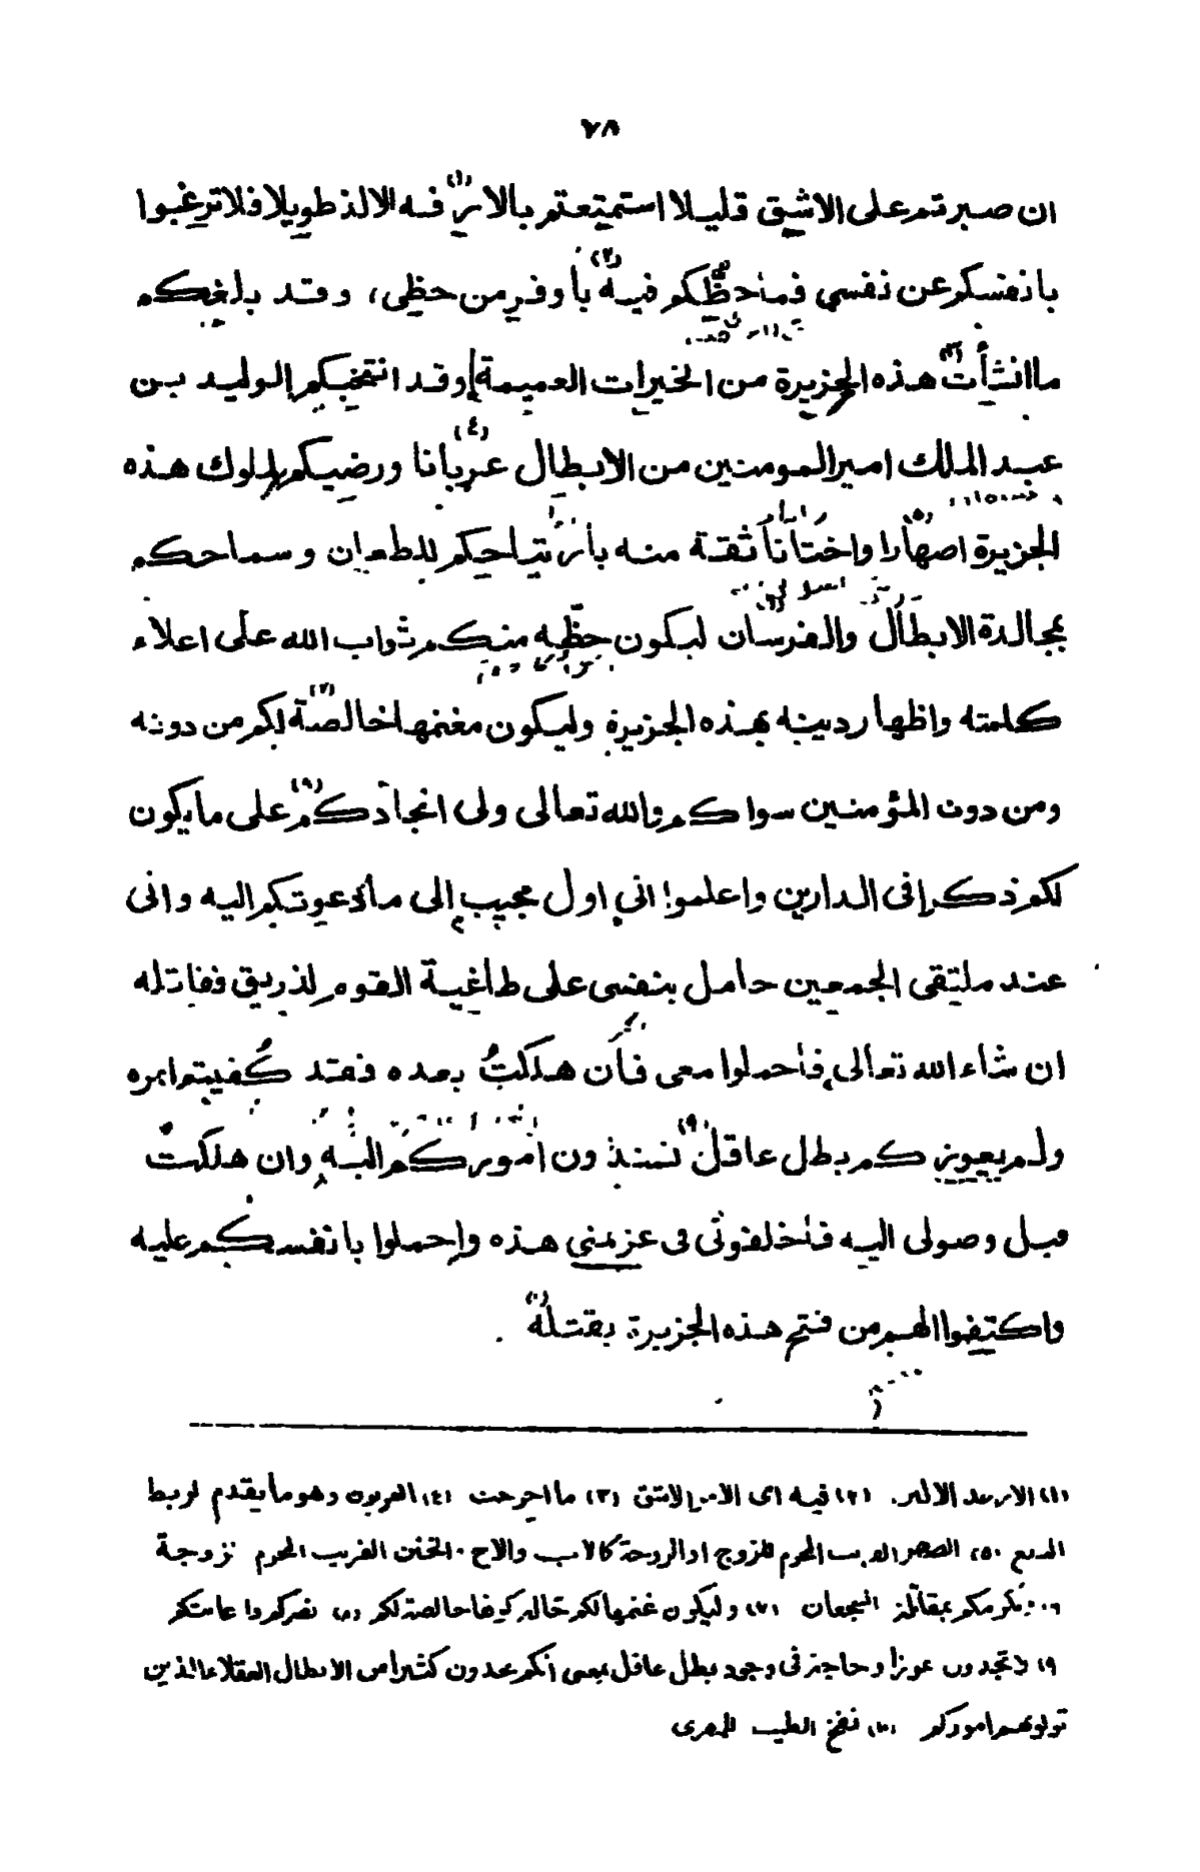 ٢٨
ان صبرتم على الاشق قليلا استمتعتم بالار(١)فه الالذ طويلا فلا ترغبوا
بانفسكم عن نفسي فما حظّكم فيه(٢) بأوفر من حظي، وقد بلغكم
ما انشأت(٣) هذه الجزيرة من الخيرات العميمة وقد انتخبكم الوليد بن
عبد الملك امير المومنين من الابطال عربانا(٤) ورضيكم لملوك هذه
الجزيرة اصهارا(٥) واختانا ثقة منه بارتياحكم للطعان وسماحكم
بمجالدة الابطال والفرسان(٦) ليكون حظّه منكم ثواب الله على اعلاء
كلمته واظهار دينه بهذه الجزيرة وليكون مغنمها خالصة(٧) لكم من دونه
ومن دون المؤمنين سواكم والله تعالى ولى انجادكم(٨) على ما يكون
لكم ذكرا فى الدارين واعلموا اني اول مجيب الى ما دعوتكم اليه وانى
عند ملتقى الجمعين حامل بنفسى على طاغية القوم لذريق فقاتله
ان شاء الله تعالى فاحملوا معى فان هلكتُ بعده فقد كُفيتم امره
ولم يعوزكم بطل عاقل(٩) تسندون اموركم اليه وان هلكتُ
قبل وصولى اليه فاخلفونى فى عزيمتي هذه واحملوا بانفسكم عليه
واكتفوا الهم من فتح هذه الجزيرة بقتله(١٠) .
(١) الارغد الالين. (٢) فيه اى الامر الاشق (٣) ما اخرجت (٤) العربون وهو ما يقدم لربط
البيع (٥) الصهر القريب المحرم للزوج او الزوجة كالاب والاخ. الختن القريب المحرم لزوجة
٦. وتكرمكم بمقاتلة الشجعان (٧) وليكون غنمها لكم حالة كونها خالصة لكم (٨) نصركم واعانتكم
٩) لا تجدون عوزا وحاجة فى وجود بطل عاقل بمعنى انكم تجدون كثيرا من الابطال العقلاء الذين
تولونهم اموركم (١٠) نفخ الطيب للمقرى